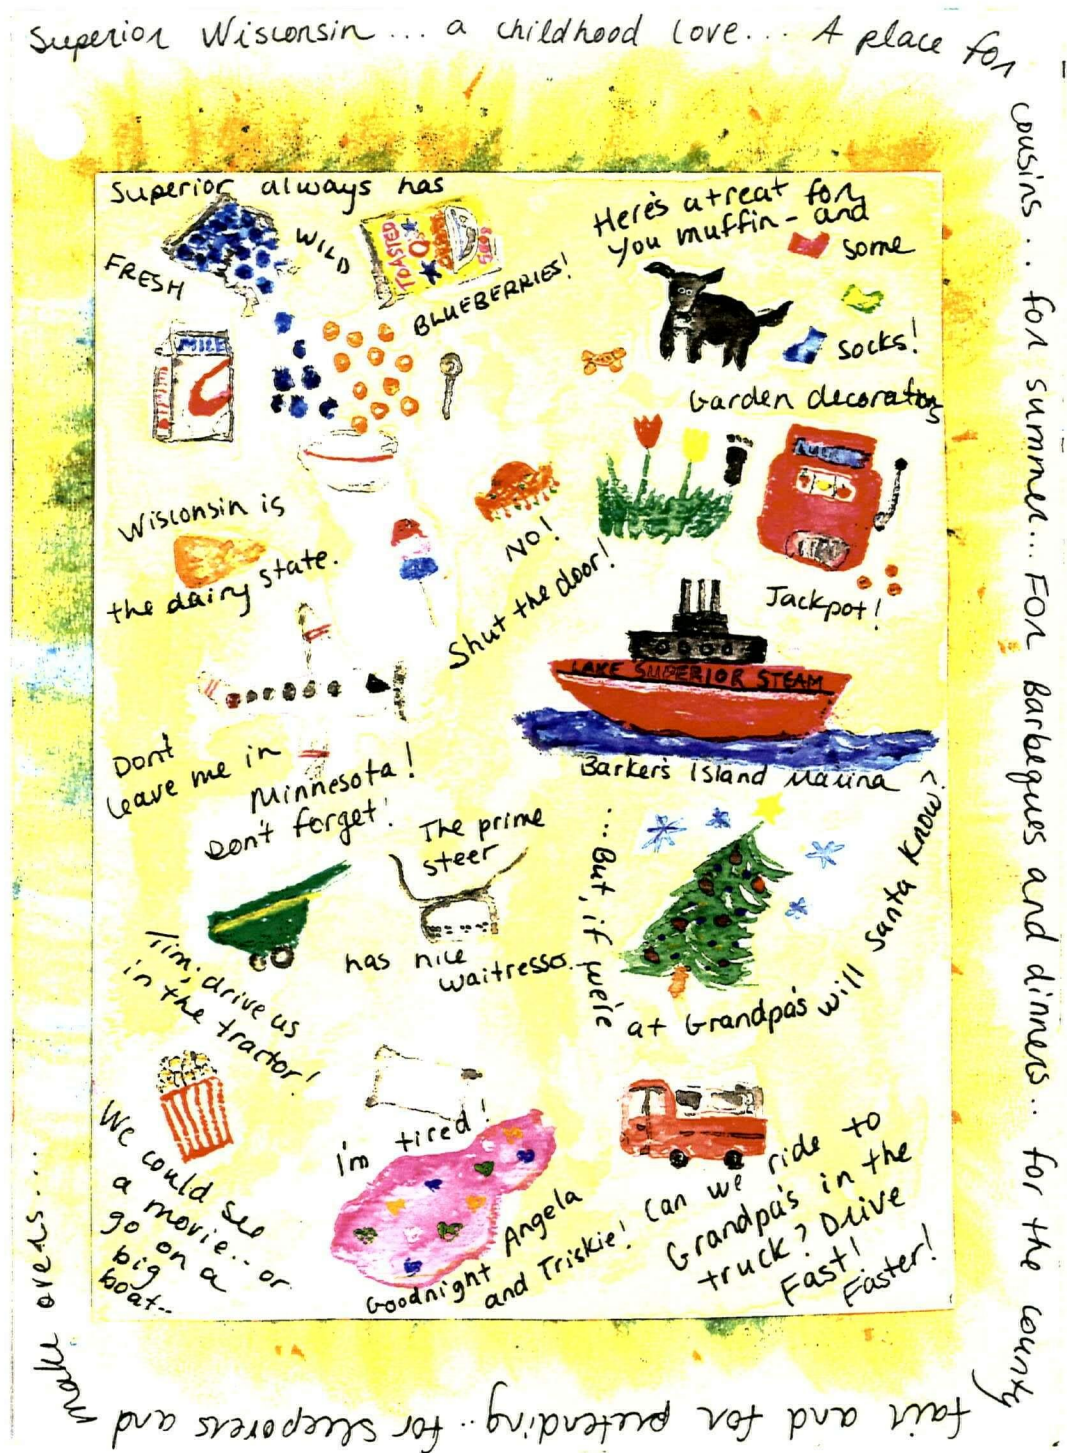 Superior Wisconsin... a childhood love... A place for
cousins.. for summer... For Barbeques and dinners.. for the county
fair and for pretending.. for sleepovers and
make overs...
Superior always has
FRESH
WILD
BLUEBERRIES!
TOASTED
O's
MILK
Here's a treat for
you muffin - and
some
socks!
Garden decorations
Jackpot!
Wisconsin is
the dairy state.
NO!
Shut the door!
LAKE SUPERIOR STEAM
Barker's Island Marina
Don't
leave me in
Minnesota!
Don't forget!
The prime
steer
has nice
waitresses.
Tim, drive us
in the tractor!
...But, if we're
at Grandpa's will Santa know?
We could see
a movie... or
go on a
big
boat..
I'm tired!
Goodnight Angela
and Triskie!
Can we ride to
Grandpa's in the
truck? Drive
Fast!
Faster!